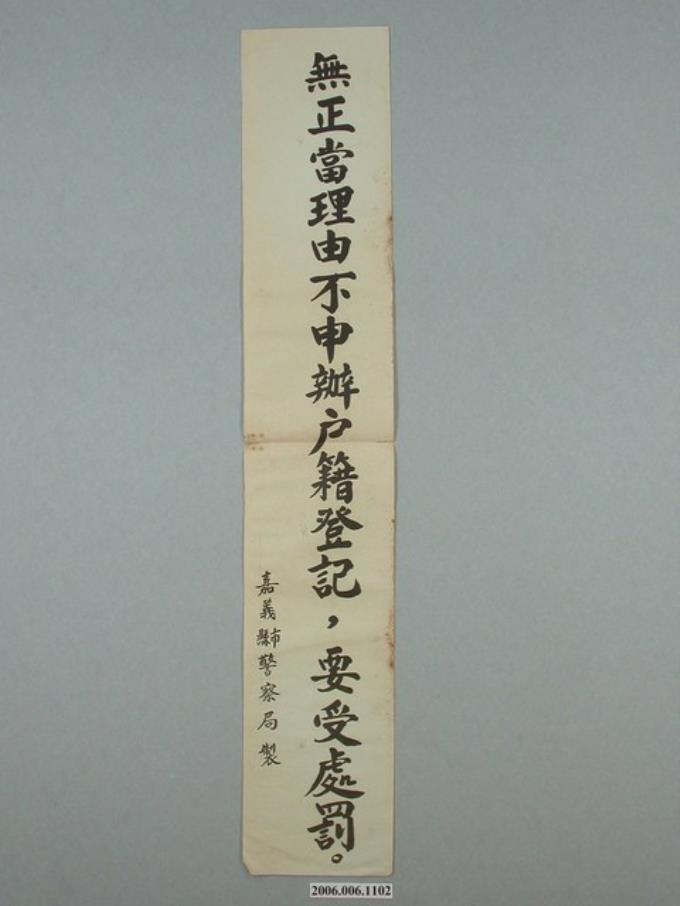 無正當理由不申辦户籍登記，要受處罰。
嘉義縣市警察局製
2006.006.1102